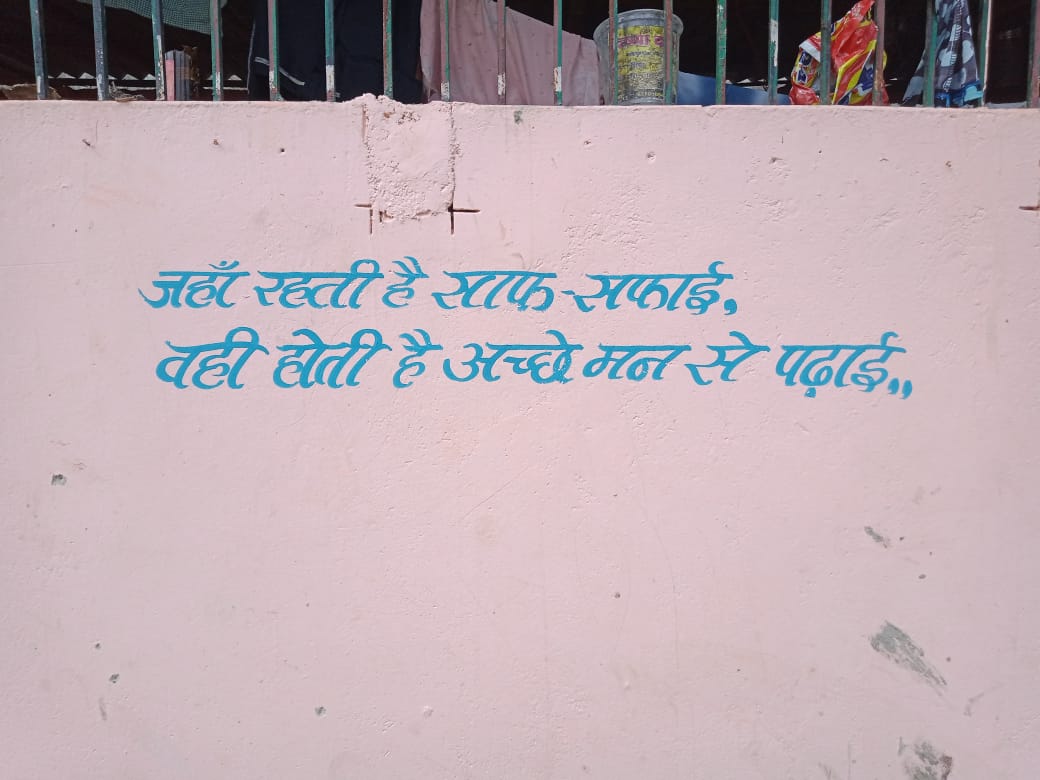 जहाँ रहती है साफ-सफाई,
वही होती है अच्छे मन से पढ़ाई,,